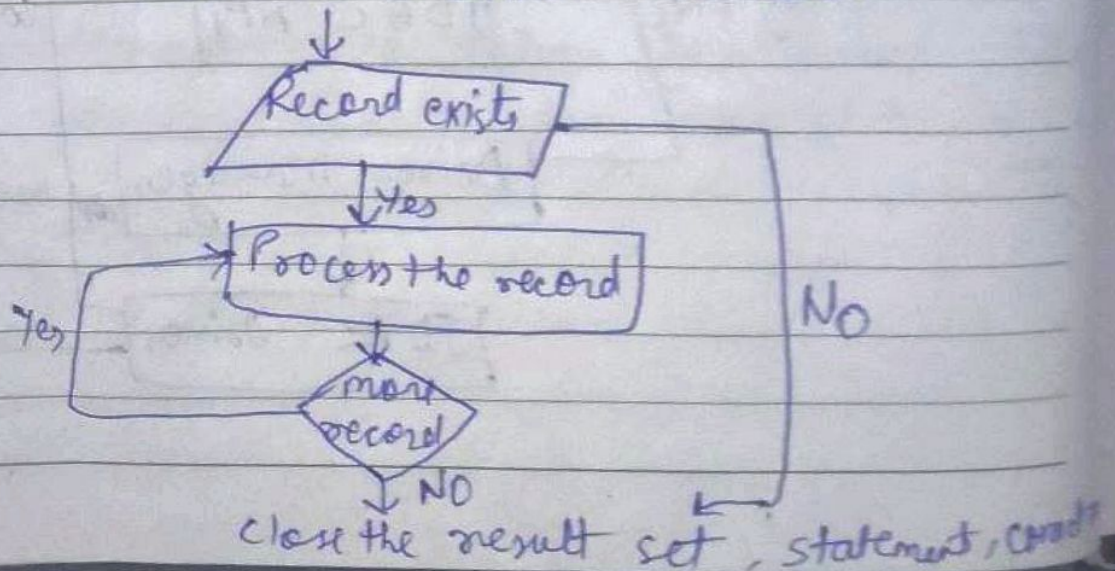 Record exists
Yes
Process the record
Yes
No
more
record
NO
Close the result set, statement,